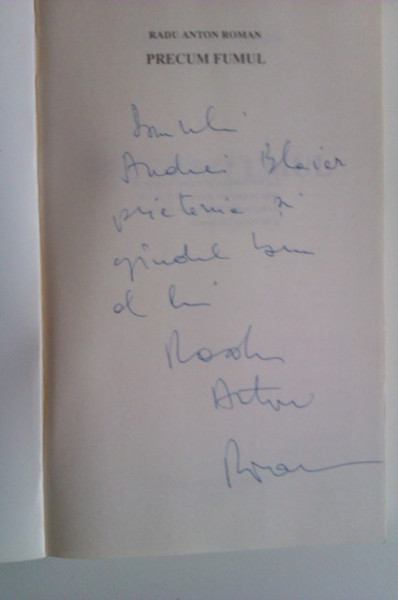 RADU ANTON ROMAN
PRECUM FUMUL
Domnului
Andrei Blaier
prietenia și
gîndul bun
al lui
Radu
Anton
Roman